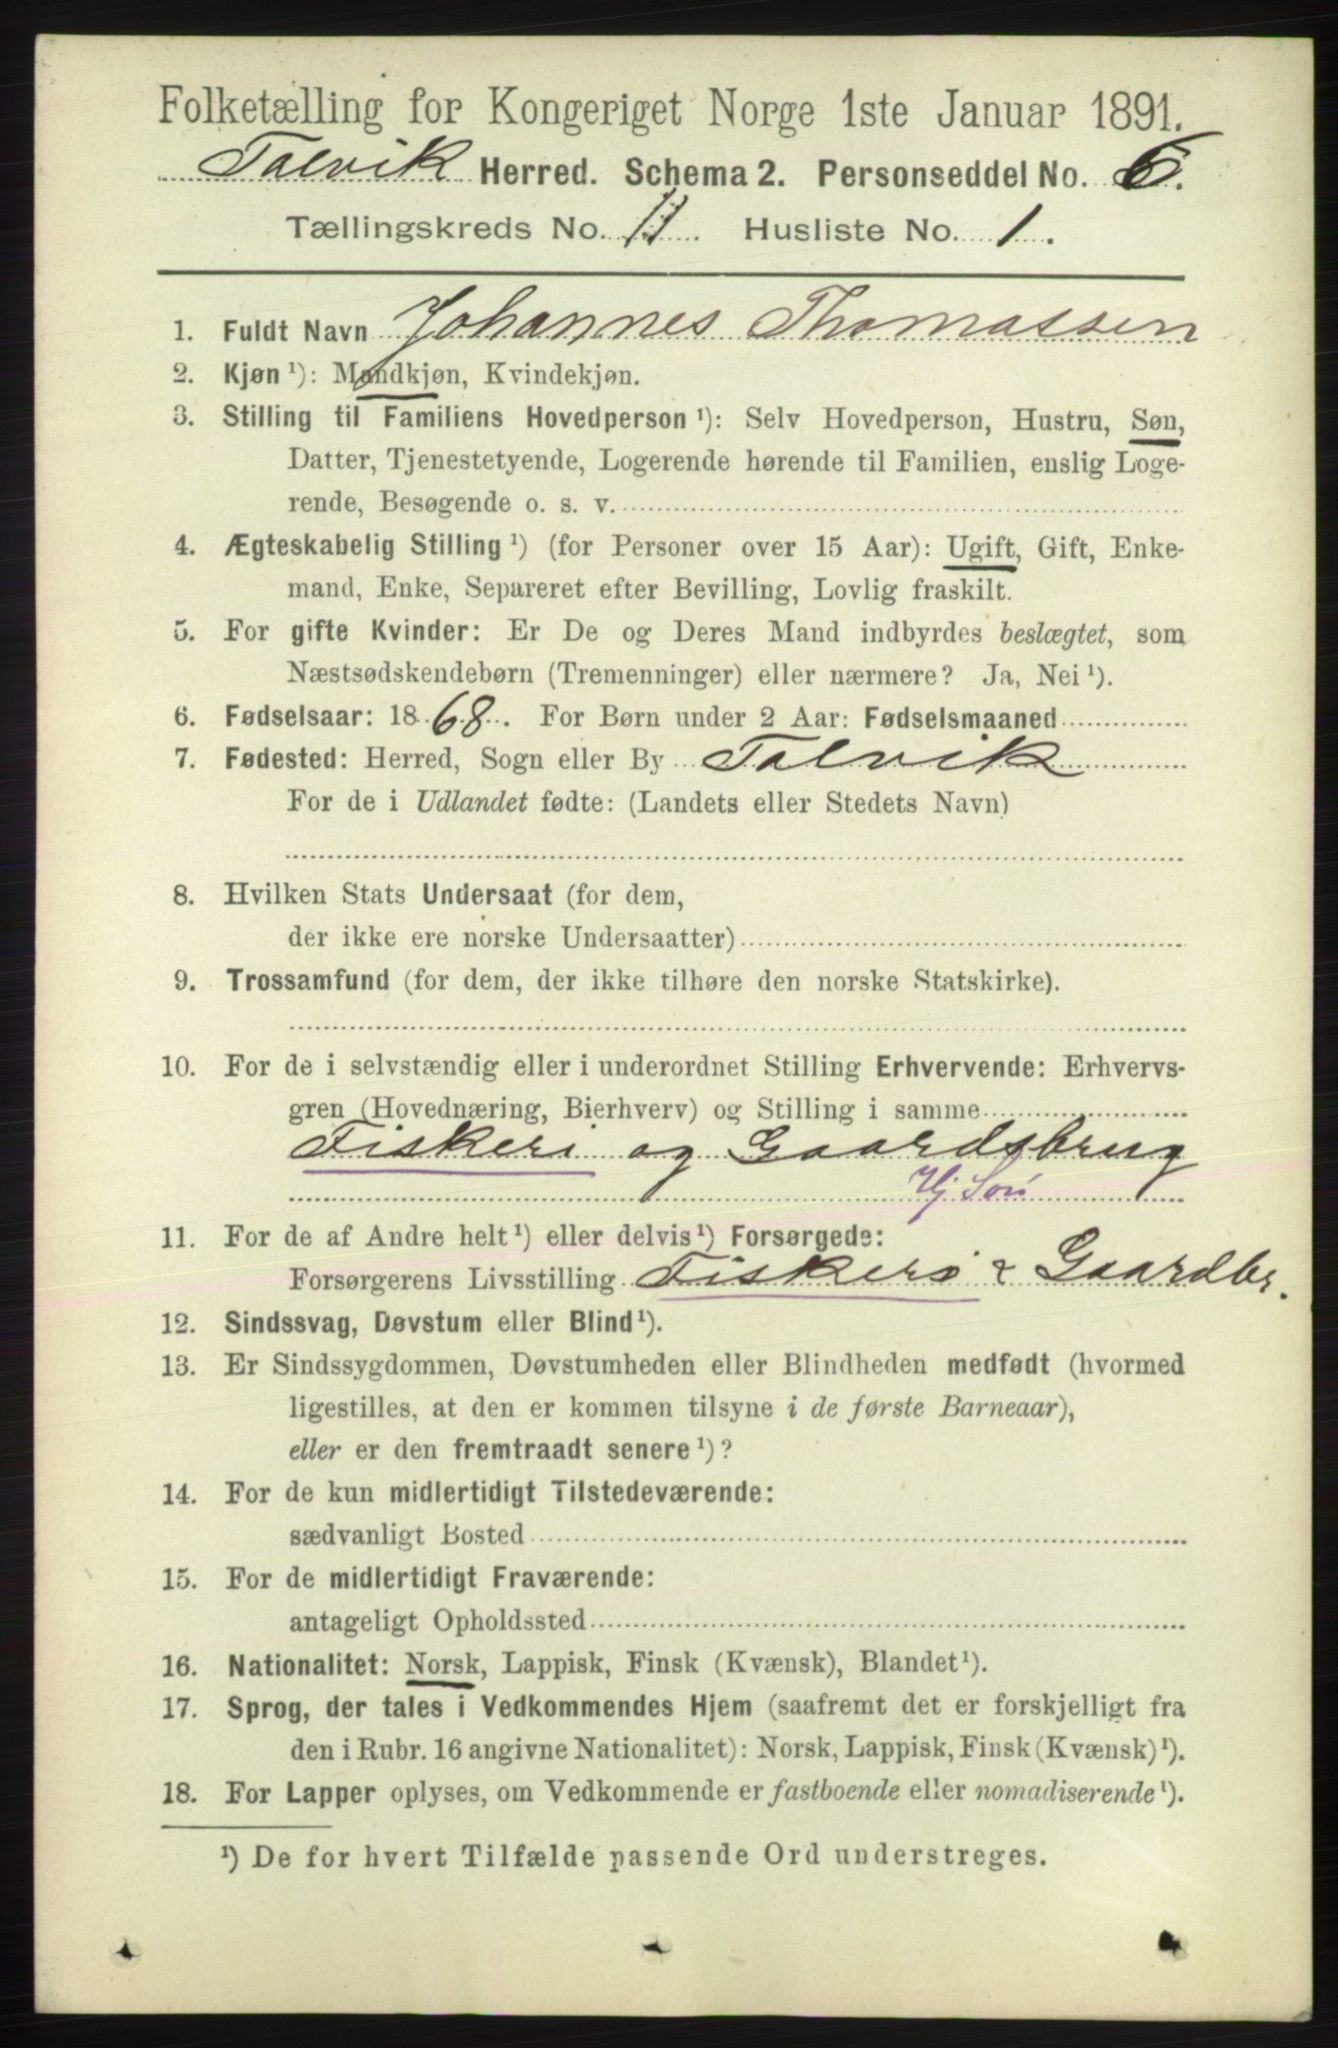 Folketælling for Kongeriget Norge 1ste Januar 1891.
Talvik Herred. Schema 2. Personseddel No. 6.
Tællingskreds No. 11. Husliste No. 1.
1. Fuldt Navn Johannes Thomassen
2. Kjøn ¹): Mandkjøn, Kvindekjøn.
3. Stilling til Familiens Hovedperson ¹): Selv Hovedperson, Hustru, Søn,
Datter, Tjenestetyende, Logerende hørende til Familien, enslig Loge-
rende, Besøgende o. s. v.
4. Ægteskabelig Stilling ¹) (for Personer over 15 Aar): Ugift, Gift, Enke-
mand, Enke, Separeret efter Bevilling, Lovlig fraskilt.
5. For gifte Kvinder: Er De og Deres Mand indbyrdes beslægtet, som
Næstsødskendebørn (Tremenninger) eller nærmere? Ja, Nei ¹).
6. Fødselsaar: 1868. For Børn under 2 Aar: Fødselsmaaned
7. Fødested: Herred, Sogn eller By Talvik
For de i Udlandet fødte: (Landets eller Stedets Navn)
8. Hvilken Stats Undersaat (for dem,
der ikke ere norske Undersaatter)
9. Trossamfund (for dem, der ikke tilhøre den norske Statskirke).
10. For de i selvstændig eller i underordnet Stilling Erhvervende: Erhvervs-
gren (Hovednæring, Bierhverv) og Stilling i samme
Fiskeri og Gaardsbrug
Hj Søn
11. For de af Andre helt ¹) eller delvis ¹) Forsørgede:
Forsørgerens Livsstilling Fiskeri & Gaardbr.
12. Sindssvag, Døvstum eller Blind ¹).
13. Er Sindssygdommen, Døvstumheden eller Blindheden medfødt (hvormed
ligestilles, at den er kommen tilsyne i de første Barneaar),
eller er den fremtraadt senere ¹)?
14. For de kun midlertidigt Tilstedeværende:
sædvanligt Bosted
15. For de midlertidigt Fraværende:
antageligt Opholdssted
16. Nationalitet: Norsk, Lappisk, Finsk (Kvænsk), Blandet ¹).
17. Sprog, der tales i Vedkommendes Hjem (saafremt det er forskjelligt fra
den i Rubr. 16 angivne Nationalitet): Norsk, Lappisk, Finsk (Kvænsk) ¹).
18. For Lapper oplyses, om Vedkommende er fastboende eller nomadiserende ¹).
¹) De for hvert Tilfælde passende Ord understreges.